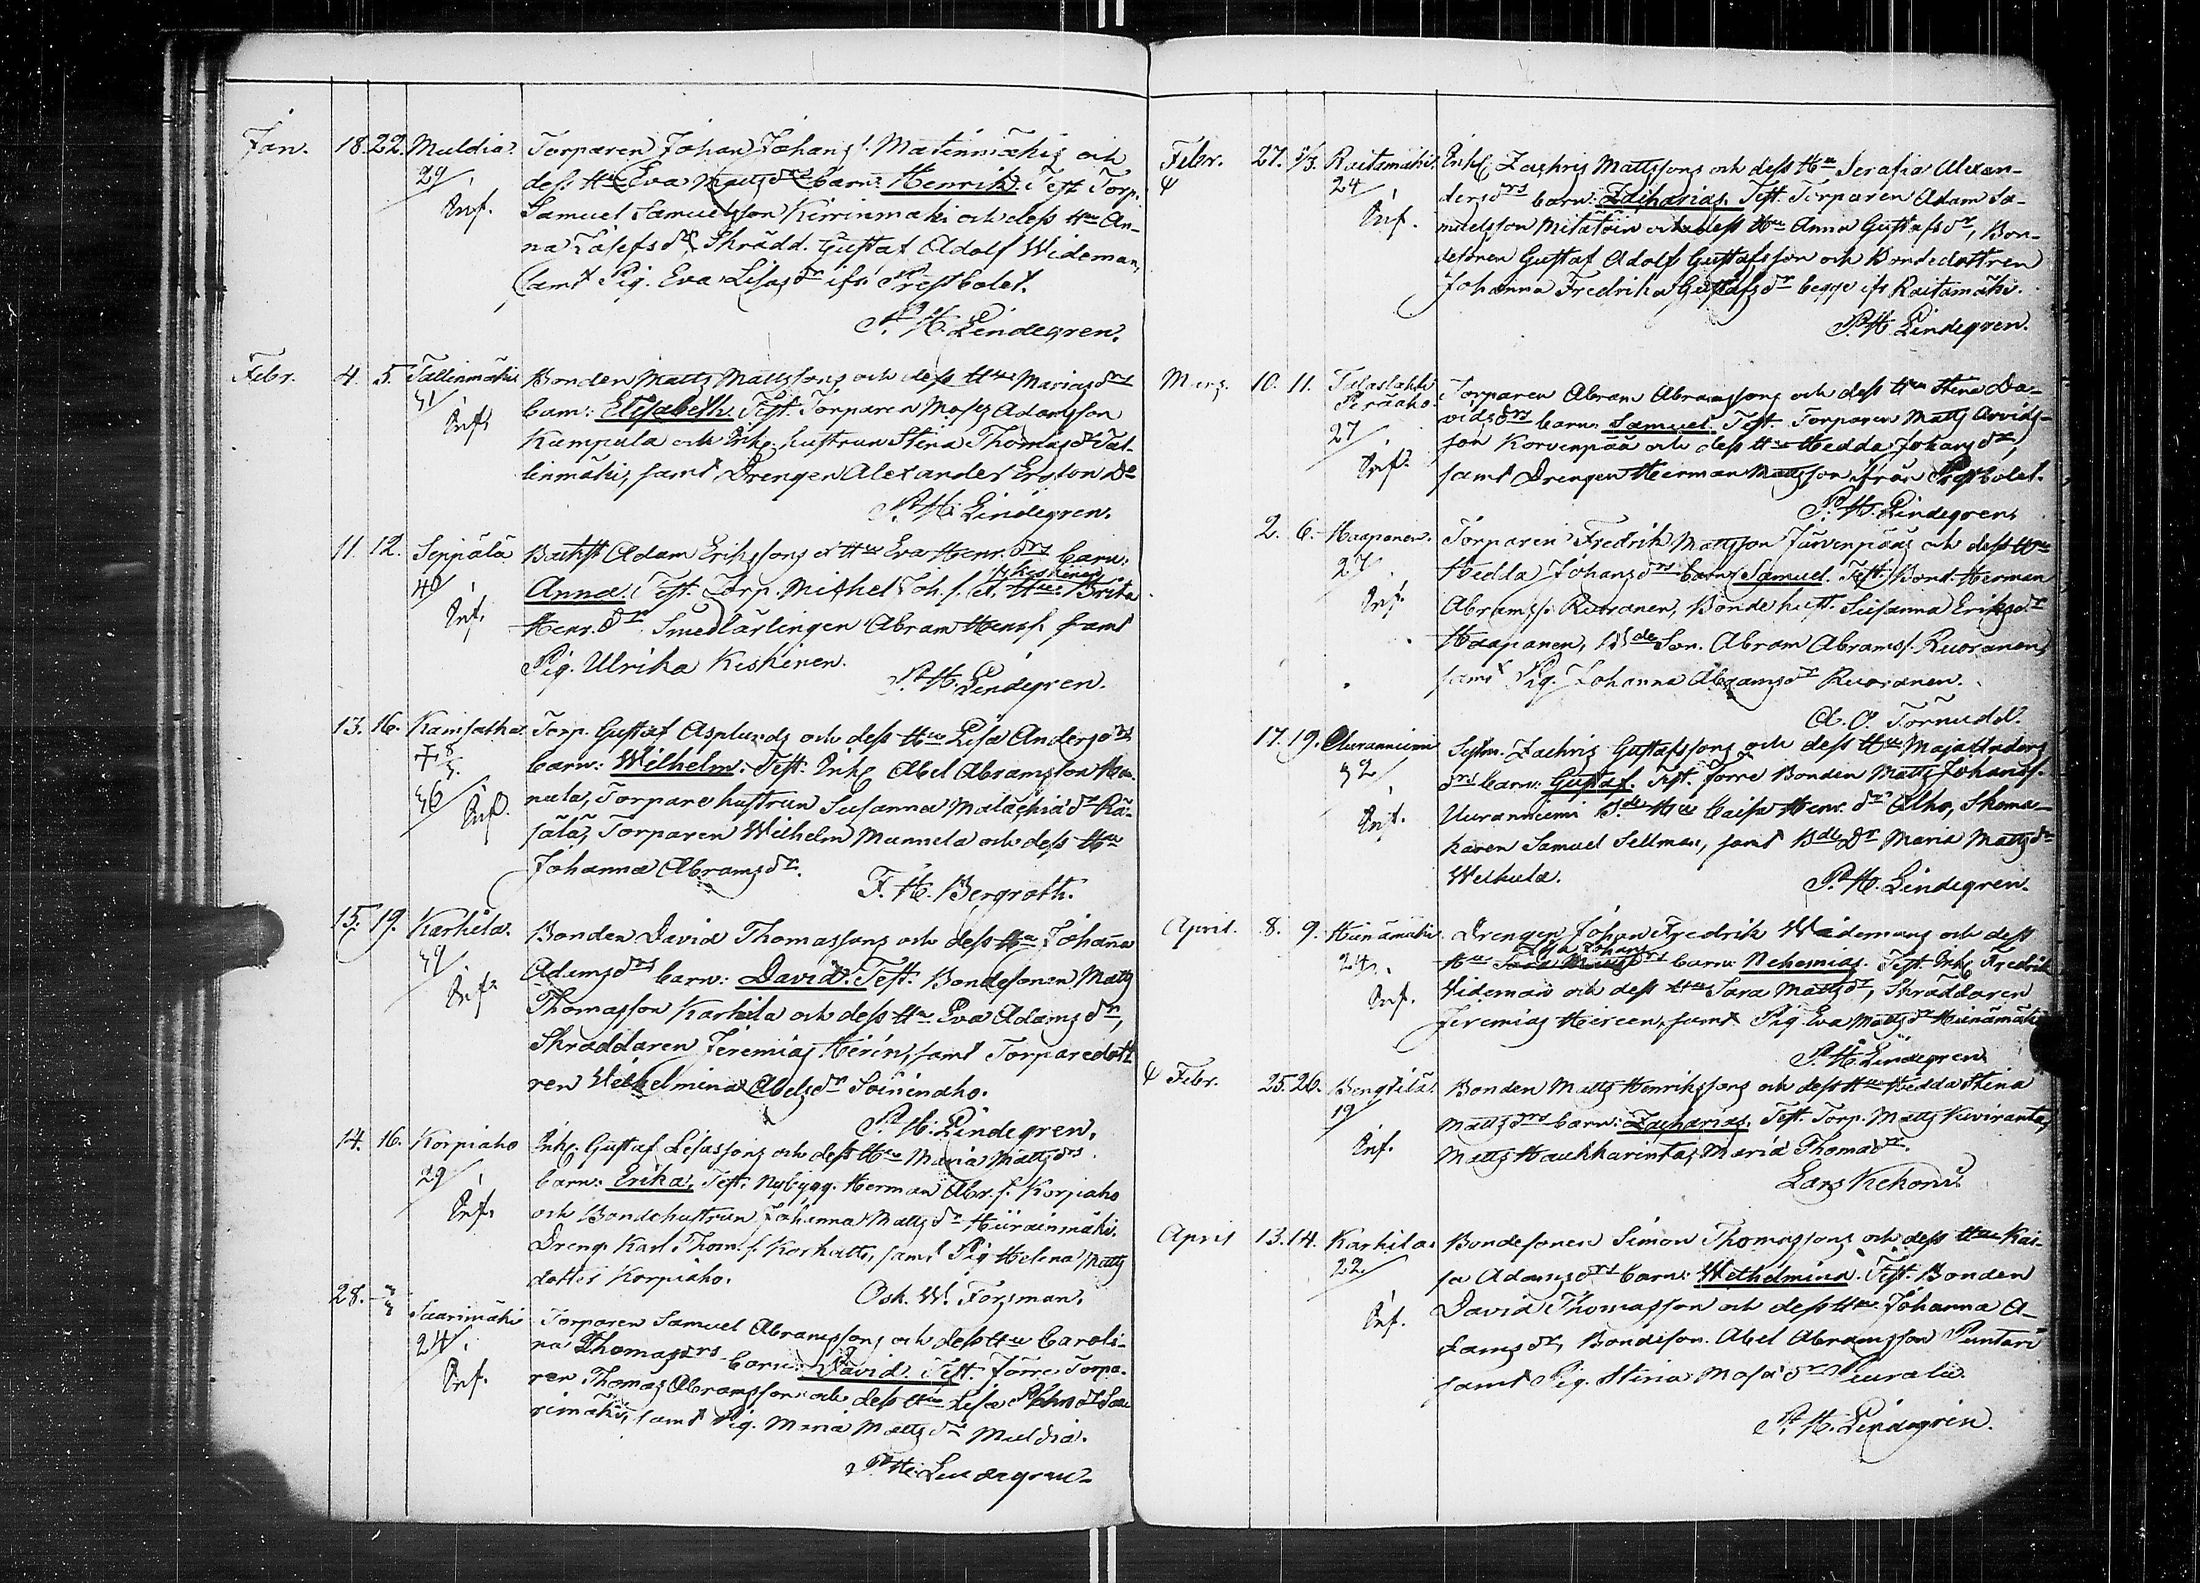 Jan. 18. 22. Muldia. Torparen Johan Johans s. Matinmäkis och
29 dess Hu Eva Mattsdrs barn: Henrik. Test. Torp.
Inf. Samuel Samuelsson Kirrinmäki och dess Hu An-
na Josefsdr, Skrädd. Gustaf Adolf Wideman,
samt Pig. Eva Lisasdr ifr. Prestbolet.
P. H. Lindegren.
Febr. 4. 5. Tallinmäki Bonden Matts Mattssons och dess Hu Marias drs
41 barn: Elisabeth. Test. Torparen Moses Adamsson
Inf. Kumpula och Inh. hustrun Stina Thomasdr Tal-
linmäki, samt Drengen Alexander Ersson Do
P. H. Lindegren.
11. 12. Seppälä Adam Erikssons o Hu Eva Henr. drs barn:
40 Anna. Test. Torp. Mikhel Joh. s. Keskinen o. Hu Brita
Inf. Henr. dr. Smedlärlingen Abram Henrs. samt
Pig. Ulrika Keskinen.
P. H. Lindegren.
13. 16. Torp. Gustaf Asplunds och dess Hu Lisa Anders drs
barn: Wilhelm. Test: Inh. Abel Abramsson
36 Inf. Torpare hustrun Susanna Malachiadr Rä-
sälä, Torparen Wilhelm Munnela och dess Hu
Johanna Abramsdr.
F. H. Bergroth.
15. 19. Karhila. Bonden David Thomassons och dess Hu Johanna
49 Adamsdrs barn: David. Test. Bondesonen Matts
Inf. Thomasson Karhila och dess Hu Eva Adamsdr,
Skräddaren Jeremias Hirén, samt Torparedott-
ren Wilhelmina Abelsdr Soinindho.
P. H. Lindegren.
14. 16. Korpiaho Inh. Gustaf Lisassons och dess Hu Maria Mattsdrs
29 barn: Erika, Test. Nybygg. Herman Abr. s. Korpiaho
Inf. och Bondehustrun Johanna Mattsdr
Dreng. Karl Thom. s. Korhatti, samt Pig Helena Matts
dotter Korpiaho.
Osk. W. Forsman.
28. 3/3 Saarimäki Torparen Samuel Abramssons och dess Hu Caroli-
24 na Thomasdrs barn: David. Test. Förre Torpa-
Inf. ren Thomas Abramsson och dess Hu Lisa Johnsdr Saa-
rimäki, samt Pig. Maria Mattsdr Muldia.
P. H. Lindegren.
Febr. 27. 1/3. Raitamäki. Inh. Zachris Mattssons och dess Hu Serafia Alexan-
24 dersdrs barn: Zacharias. Test. Torparen Adam Sa-
Inf. muelsson Mitätöin och dess Hu Anna Gustafsdr, Bon-
desonen Gustaf Adolf Gustafsson och Bondedottren
Johanna Fredrika Gustafsdr begge ifr Raitamäki.
P. H. Lindegren.
Mars. 10. 11. Talaslahti Torparen Abram Abramssons och dess Hu Stina Da-
Peräaho. vidsdrs barn: Samuel. Test. Torparen Matts Arvids-
27 son Korvenpää och dess Hu Hedda Johansdr,
Inf. samt Drengen Herman Mattsson ifrån Prestbolet.
P. H. Lindegren.
2. 6. Haapanen. Torparen Fredrik Mattsson Järvenpääs och dess Hu
27 Hedda Johansdrs barn: Samuel. Test: Bond. Herman
Inf. Abramss. Ruoranen, Bondehust. Susanna Eriksdr
Haapanen, Bde Son. Abram Abramss. Ruoranen,
samt Pig. Johanna Abramsdr Ruoranen.
A. O. Törnudd.
17. 19. Uuranniemi Zachris Gustafssons och dess Hu Maja Anders
32 drs barn: Gustaf. Test. Förre Bonden Matts Johanss.
Inf. Uuranniemi Bde Hu Caisa Henr. dr Alho, Skoma-
karen Samuel Sellman, samt Bde Dr Maria Mattsdr
Weikula.
P. H. Lindegren.
April. 8. 9. Heinämäki Drengen Johan Fredrik Widemans och dess
24. Hu barn: Nehemias. Test. Inh. Fredrik
Inf. Wideman och dess Hu Sara Mattsdr, Skräddaren
Jeremias Hireen, samt Pig Eva Mattsdr Heinämäki
P. H. Lindegren.
Febr. 25. 26. Bengtilä. Bonden Matts Henrikssons och dess Hu Hedda Stina
19 Mattsdrs barn: Zacharias. Test. Torp. Matts Kiviranta,
Inf. Matts Haukkarinta, Maria Thomasdr.
Lars Kehoni.
April 13. 14. Karhila. Bondesonen Simon Thomassons och dess Hu Kai-
22 sa Adamsdrs barn: Wilhelmina. Test. Bonden
Inf. David Thomasson och dess Hu Johanna A-
damsdr, Bondeson. Abel Abramsson Puntari
samt Pig. Stina Mosadr Piurala.
P. H. Lindegren.